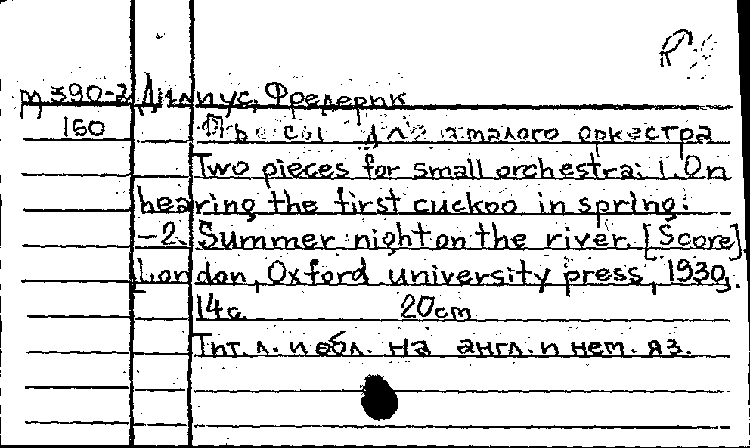 м 390-2 Дилиус, Фредерик
160 Пьесы для малого оркестра
Two pieces for small orchestra: 1. On
hearing the first cuckoo in spring.
–2. Summer night on the river. [Score].
London, Oxford university press, 1930.
14с. 20cm
Тит. л. и обл. на англ. и нем. яз.